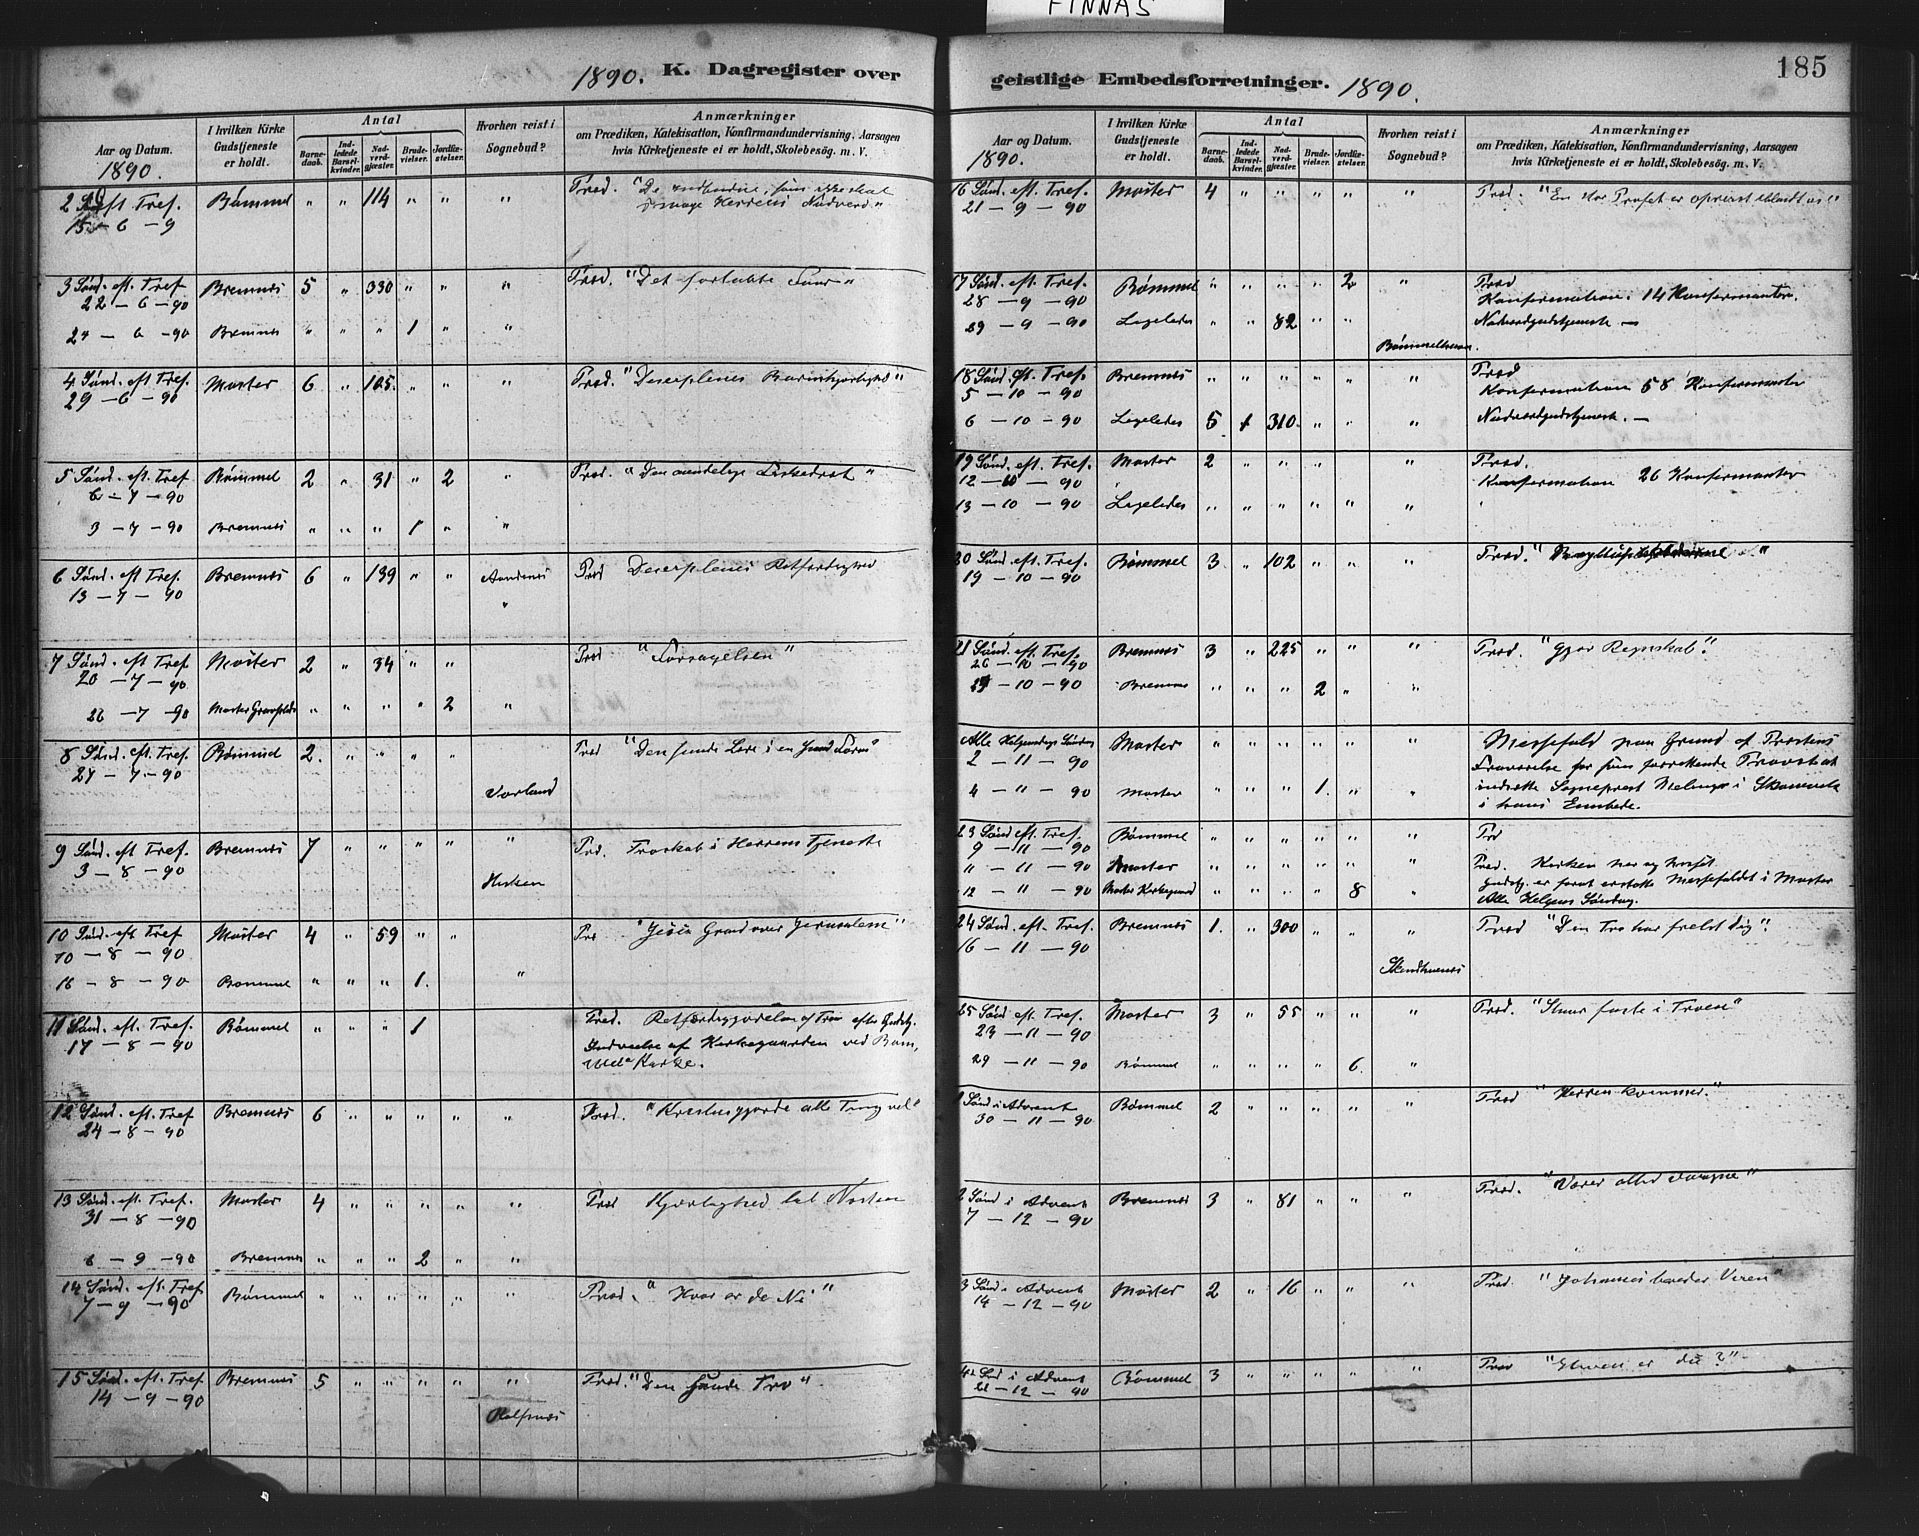 FINNAS
1890. K. Dagregister over
Aar og Datum.
1890.
I hvilken Kirke Gudstjeneste er holdt.
Antal
Barnedaab.
Indledede Barselkvinder.
Nadverdgjæster.
Brudevielser.
Jordfæstelser.
Hvorhen reist i Sognebud?
Anmærkninger
om Prædiken, Katekisation, Konfirmandundervisning, Aarsagen
hvis Kirketjeneste ei er holdt, Skolebesøg. m. V.
2 S. eft Tref. Bømmel " " 114 " " " Præd. "De indbudne, som ikke skal
15 - 6 - 9 smage Herrens Nadverd"
3 Sønd. eft. Tref Bremnes 5 " 330 " " " Præd. "Det fortabte Faar"
22 - 6 - 90
24 - 6 - 90 Bremnes " " " 1 " "
4 Sønd. eft Tref. Moster 6 " 105 " " " Præd. "Deseiplenes "
29 - 6 - 90
5 Sønd. eft Tref Bømmel 2 " 31 " 2 " Præd. "Den aandelige Fiskedræt"
6 - 7 - 90
3 - 7 - 90 Bremnes " " " 1 " "
6 Sønd. eft Tref. Bremnes 6 " 139 " " Præd Deseiplenes Retfærdighed
13 - 7 - 90 "
7 Sønd. eft Tref Moster 2 " 34 " " Præd "Forsagelsen"
20 - 7 - 90
26 - 7 - 90 Moster " " " " 2 "
8 Sønd. eft. Tref. Bømmel 2. " " " " Præd "Den sunde Lære i en sund Form"
27 - 7 - 90 Vorland
9 Sønd. eft Tref. Bremnes 7 " " " " " Præd. Troskab i Herrens Tjeneste
3 - 8 - 90 Hisken
10 Sønd. eft Tref Moster 4 " 59 " " Præ "Jesu Graad over Jerusalem"
10 - 8 - 90
16 - 8 - 90 Bømmel " " " 1. "
11 Sønd. eft. Tref. Bømmel " " " 1 Præd. Retfærdiggjørelsen af Tro efter Gudstj.
17 - 8 - 90 Indvielse af Kirkegaarden ved Bøm,
mel Kirke.
12 Sønd. eft. Tref Bremnes 6 " " " " " Præd. "Kristus gjorde alle Ting vel"
24 - 8 - 90
13 Sønd. eft. Tref. Moster 4 " " " " " Præd Kjærlighed til Næsten
31 - 8 - 90
6 - 9 - 90 Bremnes " " " 2 " "
14 Sønd. eft. Tref. Bømmel " " " " " " Præd. "Hvor er de Ni"
7 - 9 - 90
15 Sønd. eft. Tref Bremnes 5 " " " " " Præd. "Den sande Tro"
14 - 9 - 90
geistlige Embedsforretninger. 1890.
185
Aar og Datum.
1890.
I hvilken Kirke Gudstjeneste er holdt.
Antal
Barnedaab.
Indledede Barselkvinder.
Nadverdgjæster.
Brudevielser.
Jordfæstelser.
Hvorhen reist i Sognebud?
Anmærkninger
om Prædiken, Katekisation, Konfirmandundervisning, Aarsagen
hvis Kirketjeneste ei er holdt, Skolebesøg. m. V.
16 Sønd. eft. Tref. Moster 4 " " " " " Præd. "En stor Profet er opreist iblandt os"
21 - 9 - 90
17 Sønd. eft. Tref. Bømmel " " " " 2 " Præd
28 - 9 - 90 Konfirmation. 14 Konfirmanter.
29 - 9 - 90 Ligeledes " " 82 " " Nadverdgudstjeneste —
18 Sønd. eft. Tref. Bremnes " " " " " " Præd
5 - 10 - 90 Konfirmation 58 Konfirmanter
6 - 10 - 90 Ligeledes 5 1 310 " " " Nadverdgudstjeneste. —
19 Sønd. eft. Tref. Moster 2 " " " " Præd.
12 - 10 - 90 Konfirmation 26 Konfirmanter
13 - 10 - 90 Ligeledes " " " " " "
20 Sønd. eft Tref. Bømmel 3 " 102 " " " Præd. "
19 - 10 - 90
21 Sønd. eft. Tref. Bremnes 3 " 225 " " " Præd. "Gjør Regnskab".
26 - 10 - 90
29 - 10 - 90 Bremnes " " " 2 " "
Alle Helgensdags Søndag Moster " " " " " " Messefald paa Grund af Provstens
2 - 11 - 90 Fraværelse for som forrettende Provst at
4 - 11 - 90 Moster " " " 1. " " indsætte Sogneprest i
i hans Embede.
23 Sønd eft. Tref. Bømmel " " " " " " Præ
9 - 11 - 90
11 - 11 - 90 Moster " " " " " " Præd.
12 - 11 - 90 Moster Kirkegaard " " " " 8 " Gudstj. er for at erstatte Messefaldet i Moster
Alle Helgens Søndag.
24 Sønd. eft. Tref. Bremnes 1. " 300 " " " Præd "Din Tro har frelst dig".
16 - 11 - 90
25 Sønd eft. Tref. Moster 3 " 55 " " " Præd. "Staar faste i Troen"
23 - 11 - 90
29 - 11 - 90 Bømmel " " " " 6. "
1 Sønd i Advent Bømmel 2 " " " " " Præd "Herren kommer."
30 - 11 - 90
2 Sønd i Advent Bremnes 3 " 81 " " " Præd. "Værer altid "
7 - 12 - 90
3 Sønd i Advent Moster 2 " 16 " " " Præd. "Johannes bereder Veien"
14 - 12 - 90
4de Sød i Advent Bømmel 3 " " " " " Præd "Hvem er du?"
21 - 12 - 90